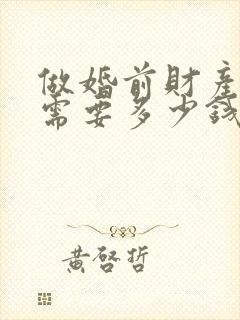 做婚前財産
需要多少錢
黃啓哲